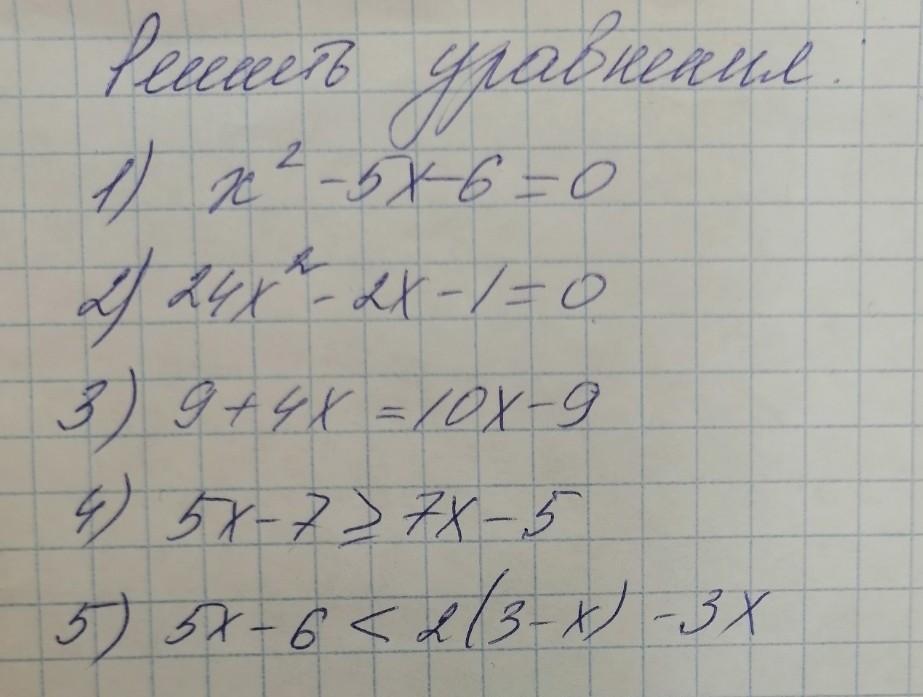 Решить уравнения.
1) x² - 5x - 6 = 0
2) 24x² - 2x - 1 = 0
3) 9 + 4x = 10x - 9
4) 5x - 7 ≥ 7x - 5
5) 5x - 6 < 2(3 - x) - 3x